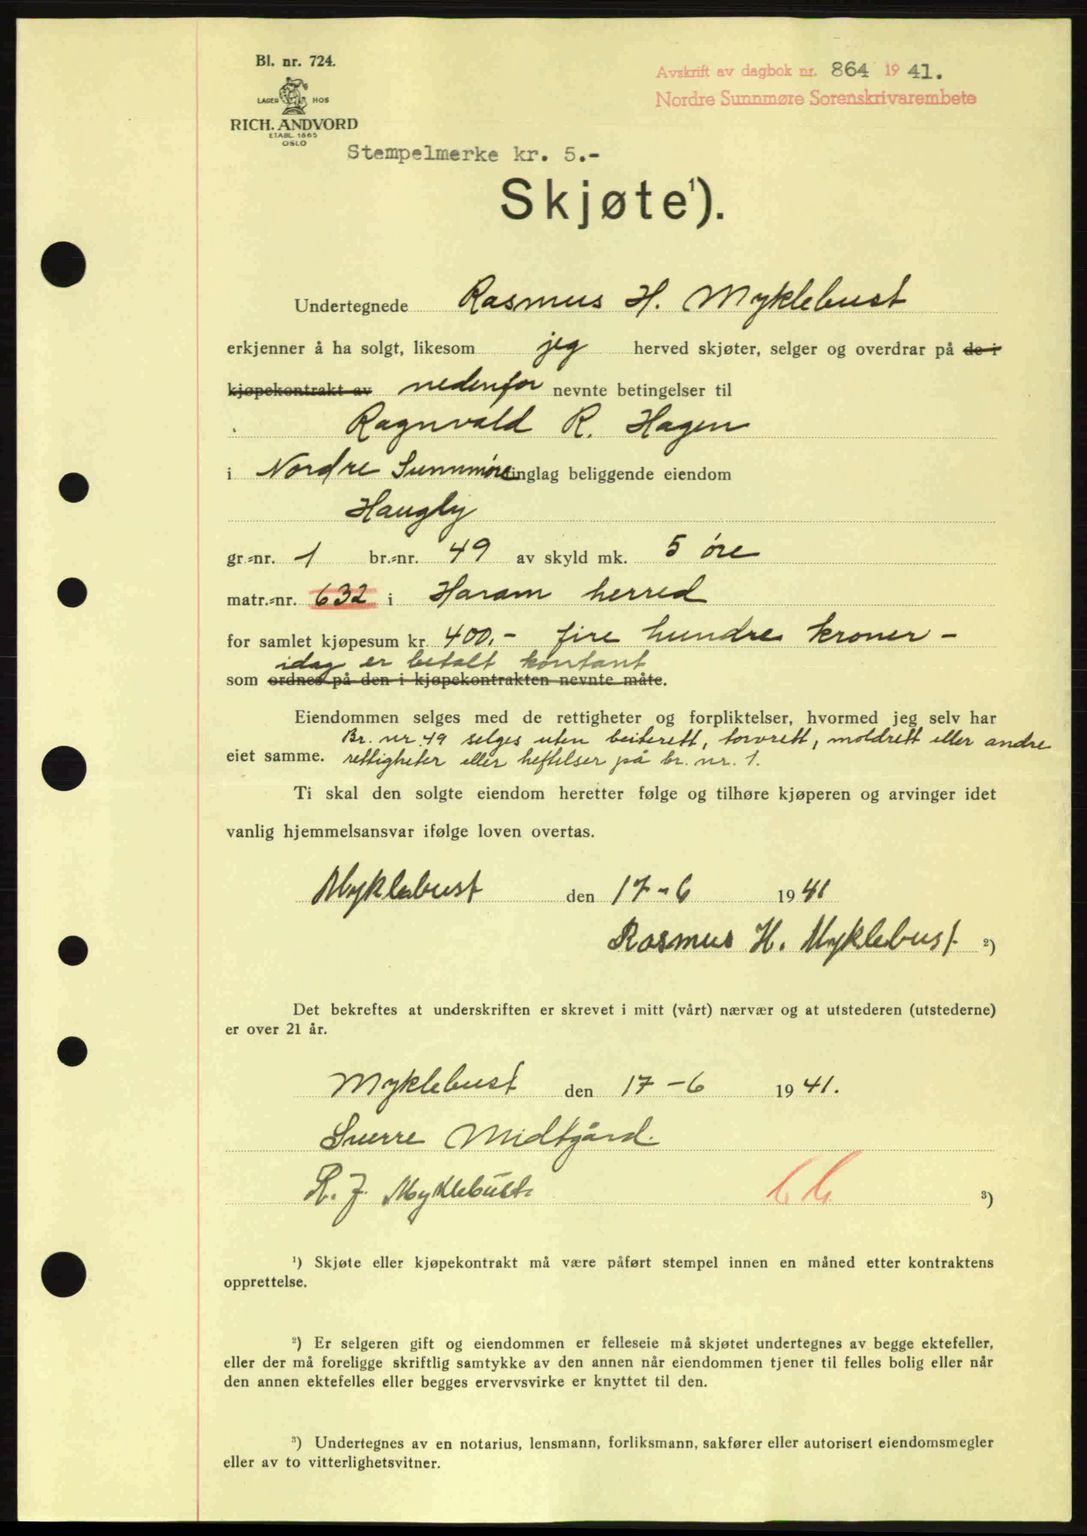 Bl. nr. 724.
LAGER HOS
RICH. ANDVORD
ETABL. 1865
OSLO
Avskrift av dagbok nr. 864 1941.
Nordre Sunnmøre Sorenskrivarembete
Stempelmerke kr. 5.-
Skjøte¹).
Undertegnede Rasmus H. Myklebust
erkjenner å ha solgt, likesom jeg herved skjøter, selger og overdrar på de i
kjøpekontrakt av nedenfor nevnte betingelser til
Ragnvald R. Hagen
i Nordre Sunnmøre tinglag beliggende eiendom
Haugly
gr.-nr. 1 br.-nr. 49 av skyld mk. 5 øre
matr.-nr. 632 i Haram herred
for samlet kjøpesum kr. 400,- fire hundre kroner -
idag er betalt kontant
som ordnes på den i kjøpekontrakten nevnte måte.
Eiendommen selges med de rettigheter og forpliktelser, hvormed jeg selv har
Br. nr. 49 selges uten beiterett, torvrett, moldrett eller andre
eiet samme. rettigheter eller heftelser på br. nr. 1.
Ti skal den solgte eiendom heretter følge og tilhøre kjøperen og arvinger idet
vanlig hjemmelsansvar ifølge loven overtas.
Myklebust den 17-6 1941
Rasmus H. Myklebust ²)
Det bekreftes at underskriften er skrevet i mitt (vårt) nærvær og at utstederen (utstederne)
er over 21 år.
Myklebust den 17-6 1941.
Sverre Midtgård.
R. J. Myklebust ³)
¹) Skjøte eller kjøpekontrakt må være påført stempel innen en måned etter kontraktens
opprettelse.
²) Er selgeren gift og eiendommen er felleseie må skjøtet undertegnes av begge ektefeller,
eller der må foreligge skriftlig samtykke av den annen når eiendommen tjener til felles bolig eller når
den annen ektefelles eller begges ervervsvirke er knyttet til den.
³) Undertegnes av en notarius, lensmann, forliksmann, sakfører eller autorisert eiendomsmegler
eller av to vitterlighetsvitner.